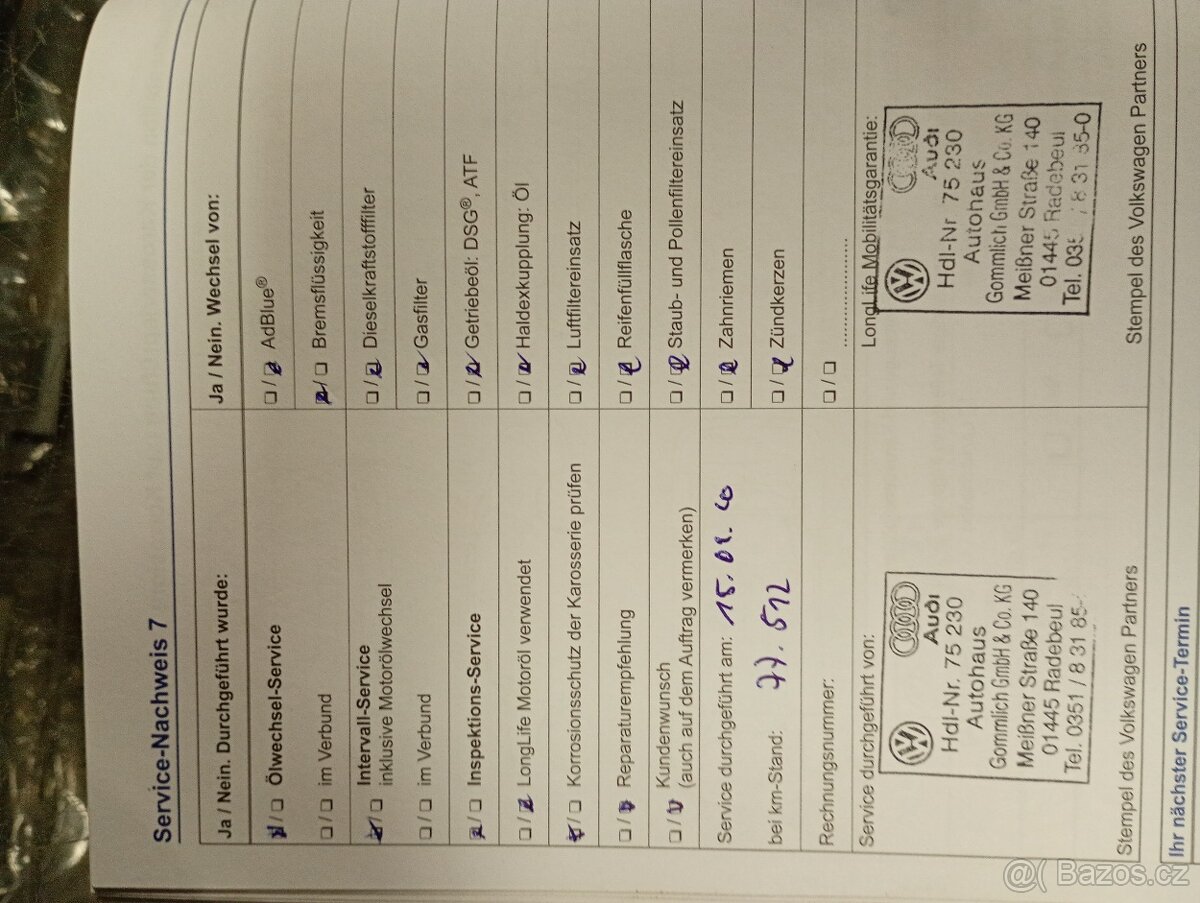 Service-Nachweis 7
Ja / Nein. Durchgeführt wurde:
☒ / ☐ Ölwechsel-Service
☐ / ☐ im Verbund
☒ / ☐ Intervall-Service
inklusive Motorölwechsel
☐ / ☐ im Verbund
☒ / ☐ Inspektions-Service
☐ / ☒ LongLife Motoröl verwendet
☒ / ☐ Korrosionsschutz der Karosserie prüfen
☐ / ☒ Reparaturempfehlung
☐ / ☒ Kundenwunsch
(auch auf dem Auftrag vermerken)
Service durchgeführt am: 15.
bei km-Stand: 77.512
Rechnungsnummer:
Service durchgeführt von:
Audi
Hdl-Nr. 75 230
Autohaus
Gommlich GmbH & Co. KG
Meißner Straße 140
01445 Radebeul
Tel. 0351 / 8 31 85-
Stempel des Volkswagen Partners
Ja / Nein. Wechsel von:
☐ / ☒ AdBlue®
☒ / ☐ Bremsflüssigkeit
☐ / ☒ Dieselkraftstofffilter
☐ / ☒ Gasfilter
☐ / ☒ Getriebeöl: DSG®, ATF
☐ / ☒ Haldexkupplung: Öl
☐ / ☒ Luftfiltereinsatz
☐ / ☒ Reifenfüllflasche
☐ / ☒ Staub- und Pollenfiltereinsatz
☐ / ☒ Zahnriemen
☐ / ☒ Zündkerzen
☐ / ☐ ....................
LongLife Mobilitätsgarantie:
Audi
Hdl-Nr 75 230
Autohaus
Gommlich GmbH & Co. KG
Meißner Straße 140
01445 Radebeul
Tel. 035 / 8 31 85-0
Stempel des Volkswagen Partners
Ihr nächster Service-Termin
@( Bazos.cz